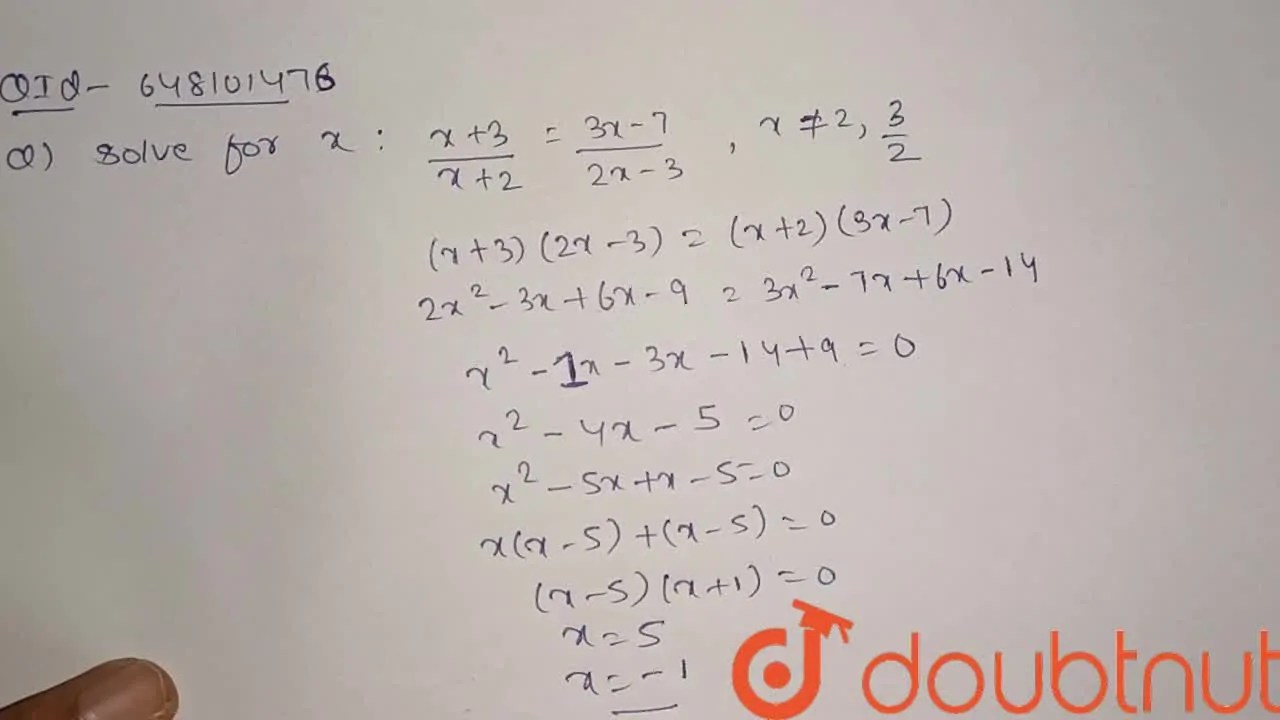 QId- 648101476
Q) solve for x : (x+3)/(x+2) = (3x-7)/(2x-3) , x ≠ 2, 3/2
(x+3)(2x-3) = (x+2)(3x-7)
2x²-3x+6x-9 = 3x²-7x+6x-14
x²-1x-3x-14+9=0
x²-4x-5=0
x²-5x+x-5=0
x(x-5)+(x-5)=0
(x-5)(x+1)=0
x=5
x=-1
doubtnut